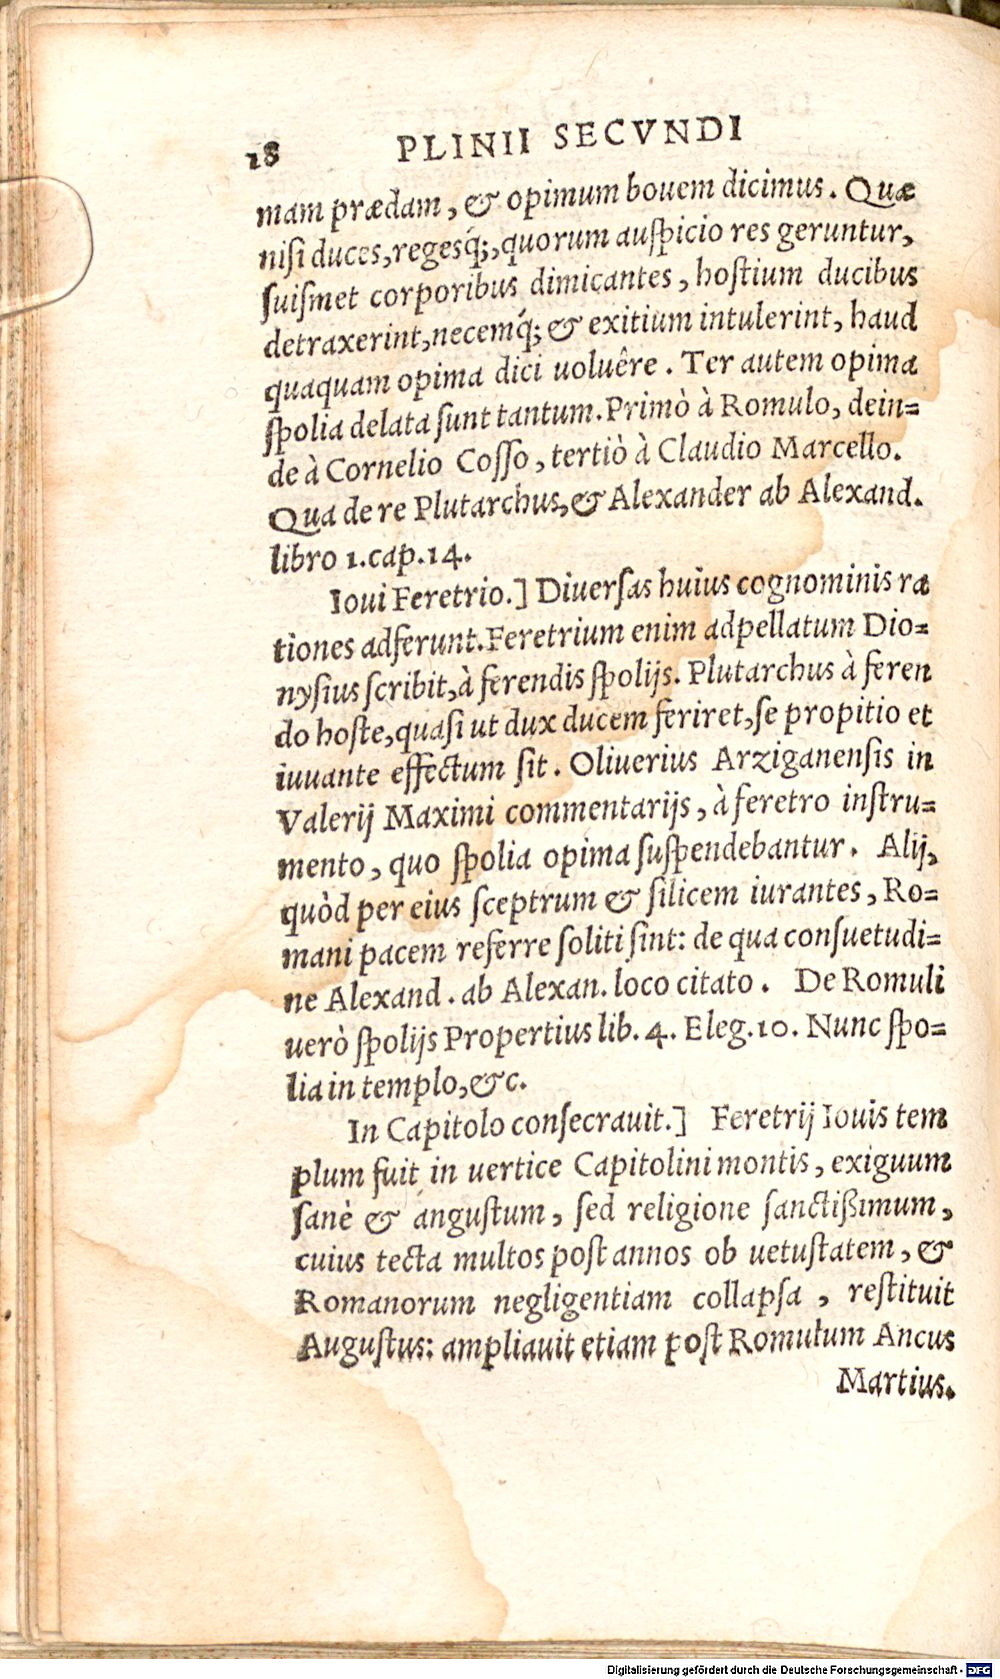 18 PLINII SECVNDI
mam prædam, & opimum bouem dicimus. Quæ
nisi duces, regesq́;, quorum auspicio res geruntur,
suismet corporibus dimicantes, hostium ducibus
detraxerint, necemq́; & exitium intulerint, haud
quaquam opima dici uoluêre. Ter autem opima
spolia delata sunt tantum. Primò à Romulo, dein=
de à Cornelio Cosso, tertiò à Claudio Marcello.
Qua de re Plutarchus, & Alexander ab Alexand.
libro 1. cap. 14.
Ioui Feretrio.] Diuersas huius cognominis ra
tiones adferunt. Feretrium enim adpellatum Dio=
nysius scribit, à ferendis spolijs. Plutarchus à feren
do hoste, quasi ut dux ducem feriret, se propitio et
iuuante effectum sit. Oliuerius Arziganensis in
Valerij Maximi commentarijs, à feretro instru=
mento, quo spolia opima suspendebantur. Alij,
quòd per eius sceptrum & silicem iurantes, Ro=
mani pacem referre soliti sint: de qua consuetudi=
ne Alexand. ab Alexan. loco citato. De Romuli
uerò spolijs Propertius lib. 4. Eleg. 10. Nunc spo=
lia in templo, &c.
In Capitolo consecrauit.] Feretrij Iouis tem
plum fuit in uertice Capitolini montis, exiguum
sanè & angustum, sed religione sanctißimum,
cuius tecta multos post annos ob uetustatem, &
Romanorum negligentiam collapsa, restituit
Augustus: ampliauit etiam post Romulum Ancus
Martius.
Digitalisierung gefördert durch die Deutsche Forschungsgemeinschaft - DFG